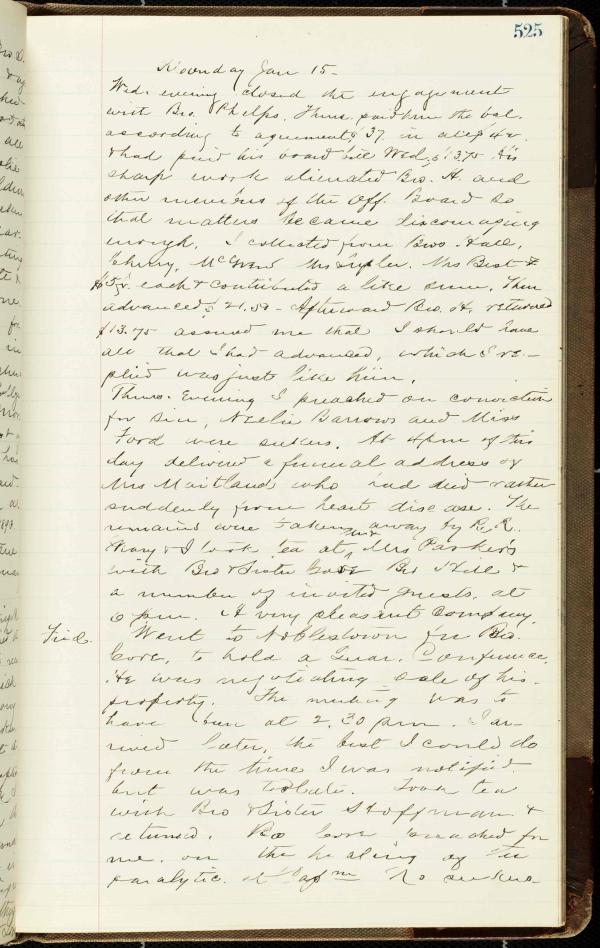 525
Monday Jan 15-
Wed. evening closed the engagement
with Bro. Phelps. Thurs. paid him the bal.
according to agreement, $37 in all,
& had paid his board bill Wed. $13.75 His
sharp work alienated Bro. H. and
other members of the Off. Board so
that matters became discouraging
enough. I collected from Bros. Hall,
Cherry, Mrs Best &
each & contributed a like sum. Then
advanced $21.50 - Afterward Bro. H. returned
$13.75 assured me that I should have
all that I had advanced, which I re-
plied was just like him.
Thurs. Evening I preached on conviction
for sin, Nellie Barrows and Miss
Ford were seekers. At 4 pm of this
day delivered a funeral address of
Mrs Maitland who had died rather
suddenly from heart disease. The
remains were taken away by R.R.
Mary & I took tea at Mrs Parker's
with Bro & Sister Gove Bro Hill &
a number of invited guests, at
6 pm. A very pleasant company.
Frid. Went to Noblestown for Bro.
Gove, to hold a Quar. Conference.
He was negotiating sale of his
property. The meeting was to
have been at 2.30 pm. I ar-
rived later, the best I could do
from the time I was notified
but was too late. Took tea
with Bro & Sister Shoffman &
returned. Bro Gove preached for
me. on the healing of the
paralytic. No seekers.